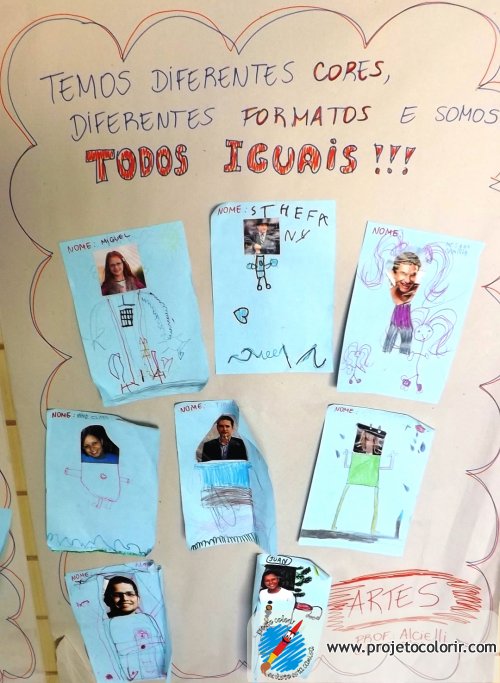 TEMOS DIFERENTES CORES,
DIFERENTES FORMATOS E SOMOS
TODOS IGUAIS!!!
NOME: MIGUEL
NOME: STHEFA
NY
NOME:
NOME:
NOME:
NOME:
NOME:
JUAN
ARTES
PROF. Alcielli
www.projetocolorir.com